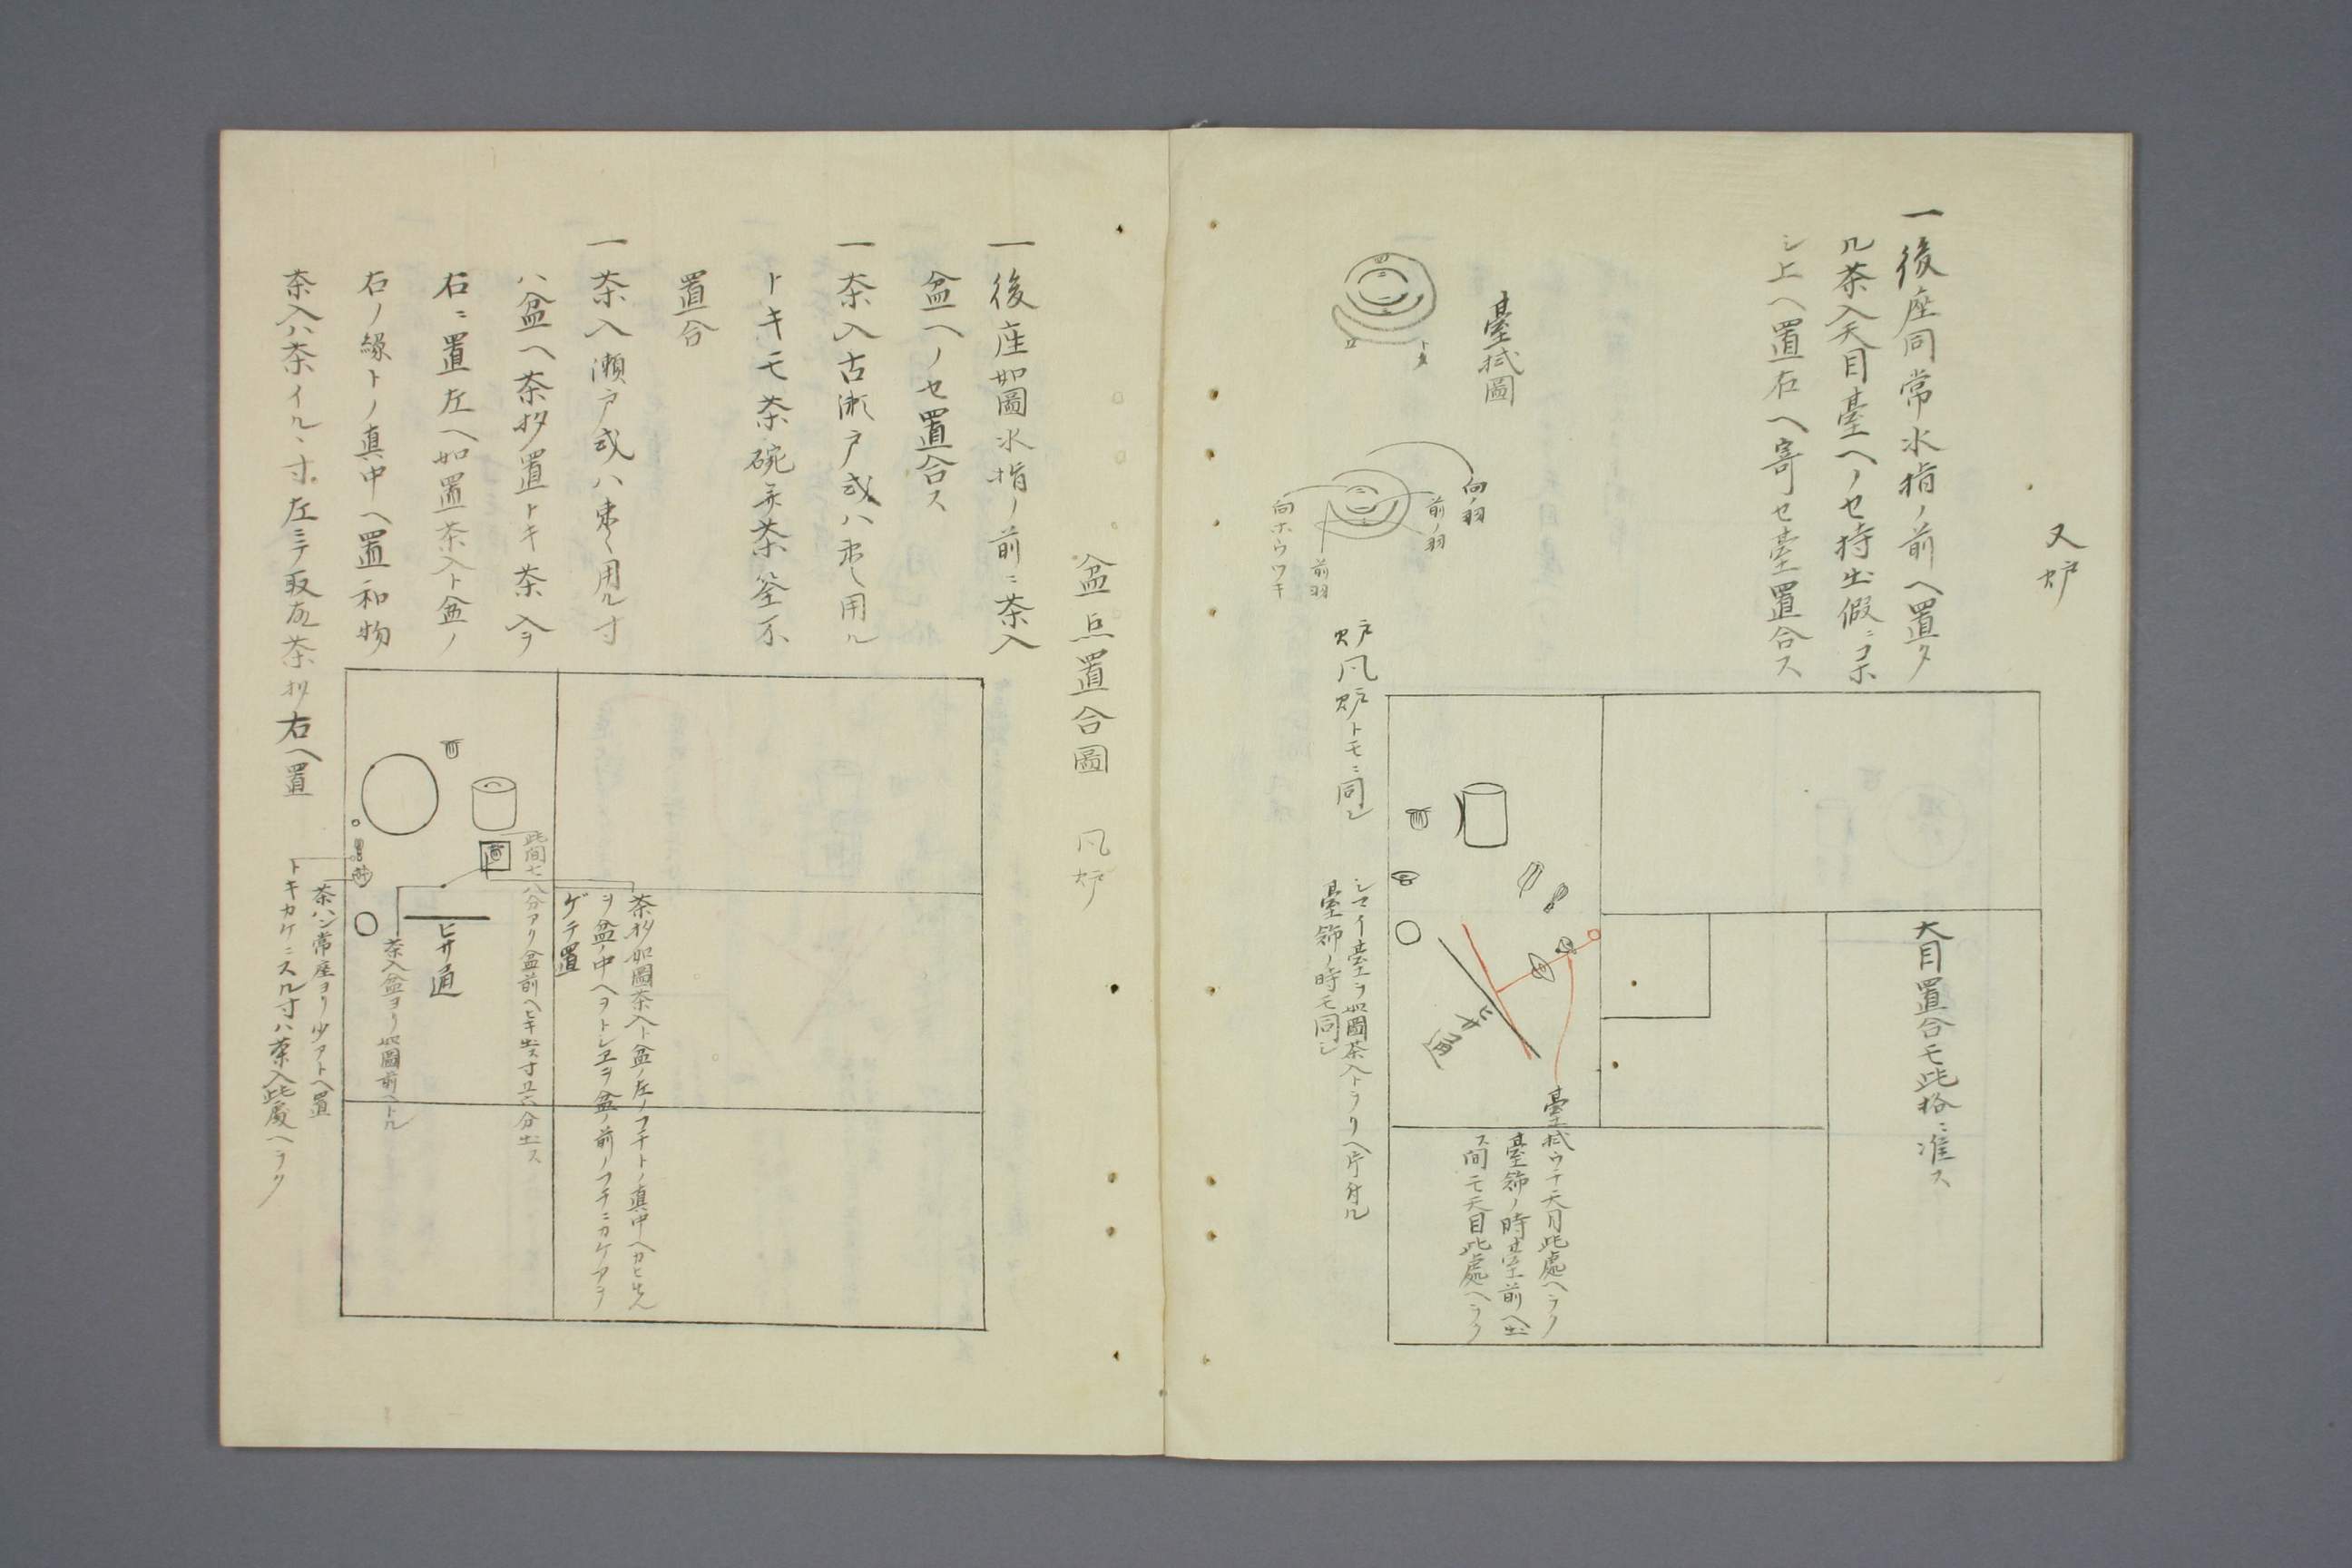 又炉
一後座同常水指ノ前ヘ置タ
ル茶入天目臺ヘノセ持出假ニコホ
シ上ヘ置右ヘ寄セ臺置合ス
臺拭圖
向ノ羽
前ノ羽
前羽
向ホウツキ
炉風炉トモニ同シ
大目置合モ此格ニ准ス
ヒサ通
臺拭ウチ天目此處ヘヲク
臺飾ノ時臺前ヘ出
ス間モ天目此處ヘヲク
シマイ臺ヲ如圖茶入トヲリヘ片付ル
臺飾ノ時モ同シ
盆点置合圖 風炉
一後座如圖水指ノ前ニ茶入
盆ヘノセ置合ス
一茶入古瀬戸或ハ用ル
トキモ茶碗茶筌不
置合
一茶入瀬戸或ハ用ル寸
ハ盆ヘ茶杓置トキ茶入ヲ
右ニ置左ヘ如置茶入ト盆ノ
右ノ縁トノ真中ヘ置和物
茶入ハ茶イルヽ寸左ミテ取茶杓右ヘ置
茶杓如圖茶入ト盆ノ左ノフチトノ真中ヘカヒ先
ヲ盆ノ中ヘヲトシエヲ盆ノ前ノフチニカケアヲ
ゲテ置
此間七八分アリ盆前ヘヒキ出ス寸五六分出ス
ヒサ通
茶入盆ヨリ如圖前ヘトル
茶ハン常座ヨリ少アトヘ置
トキカケニスル寸ハ茶入此處ヘヲク